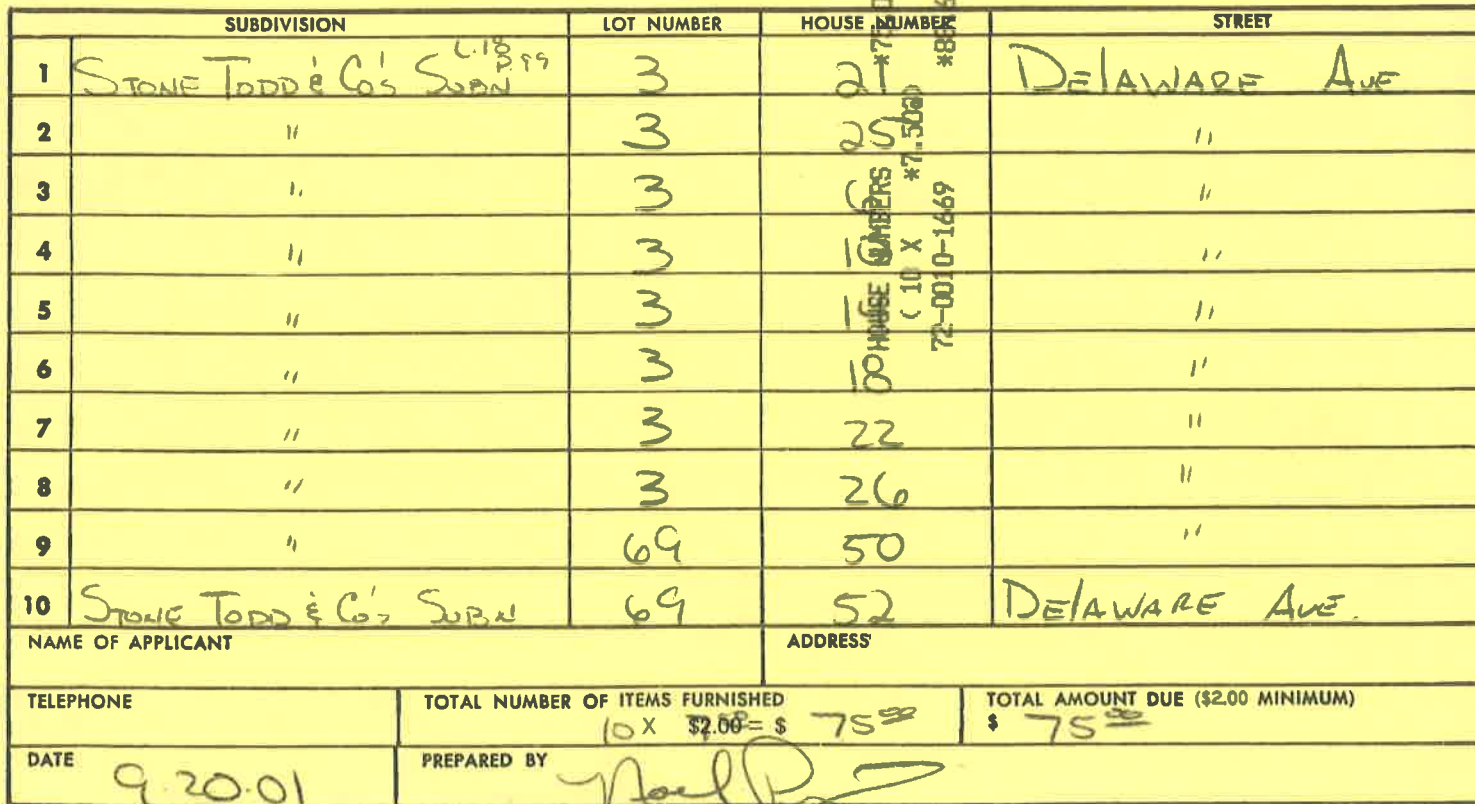 SUBDIVISION LOT NUMBER HOUSE NUMBER STREET
1 STONE TODD & CO'S SUBN L.18 P.99 3 21 DELAWARE AVE
2 " 3 25 "
3 " 3 6 "
4 " 3 "
5 " 3 "
6 " 3 "
7 " 3 22 "
8 " 3 26 "
9 " 69 50 "
10 STONE TODD & CO'S SUBN 69 52 DELAWARE AVE.
HOUSE NUMBERS
(10 X *7.50@)
72-0010-1669
NAME OF APPLICANT ADDRESS
TELEPHONE TOTAL NUMBER OF ITEMS FURNISHED TOTAL AMOUNT DUE ($2.00 MINIMUM)
10 X $2.00 = $ 75 00 $ 75 00
DATE 9.20.01 PREPARED BY